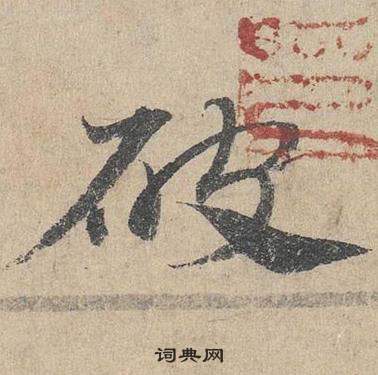 破
词典网